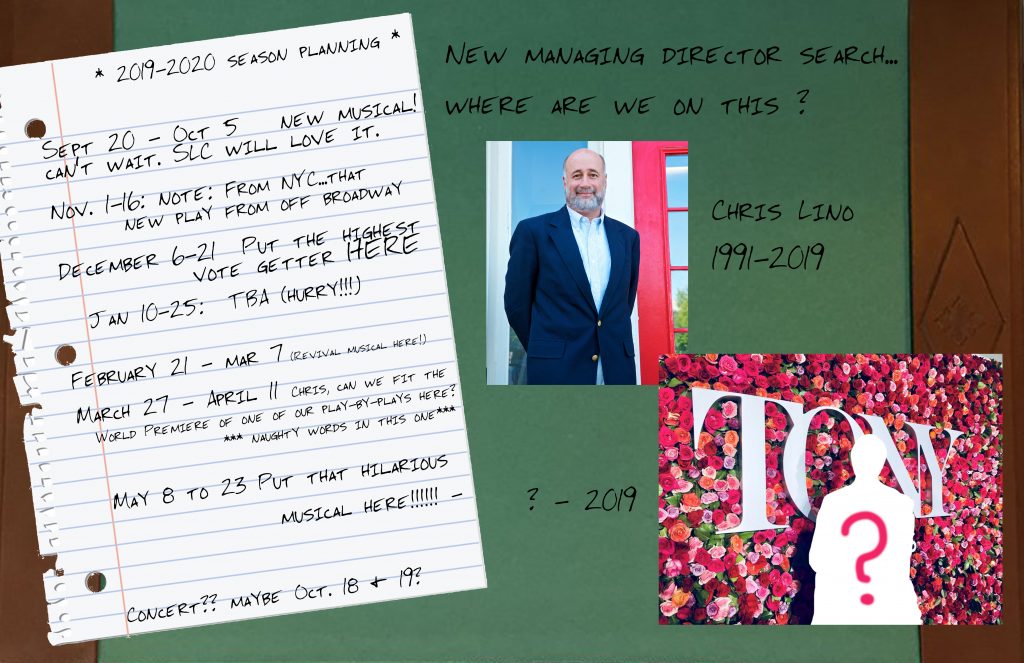 * 2019-2020 SEASON PLANNING *
SEPT 20 - OCT 5 NEW MUSICAL!
CAN'T WAIT. SLC WILL LOVE IT.
NOV. 1-16: NOTE: FROM NYC...THAT
NEW PLAY FROM OFF BROADWAY
DECEMBER 6-21 PUT THE HIGHEST
VOTE GETTER HERE
JAN 10-25: TBA (HURRY!!!)
FEBRUARY 21 - MAR 7 (REVIVAL MUSICAL HERE!)
MARCH 27 - APRIL 11 CHRIS, CAN WE FIT THE
WORLD PREMIERE OF ONE OF OUR PLAY-BY-PLAYS HERE?
*** NAUGHTY WORDS IN THIS ONE***
MAY 8 TO 23 PUT THAT HILARIOUS
MUSICAL HERE!!!!!! -
CONCERT?? MAYBE OCT. 18 & 19?
NEW MANAGING DIRECTOR SEARCH...
WHERE ARE WE ON THIS ?
CHRIS LINO
1991-2019
? - 2019
TONY
?